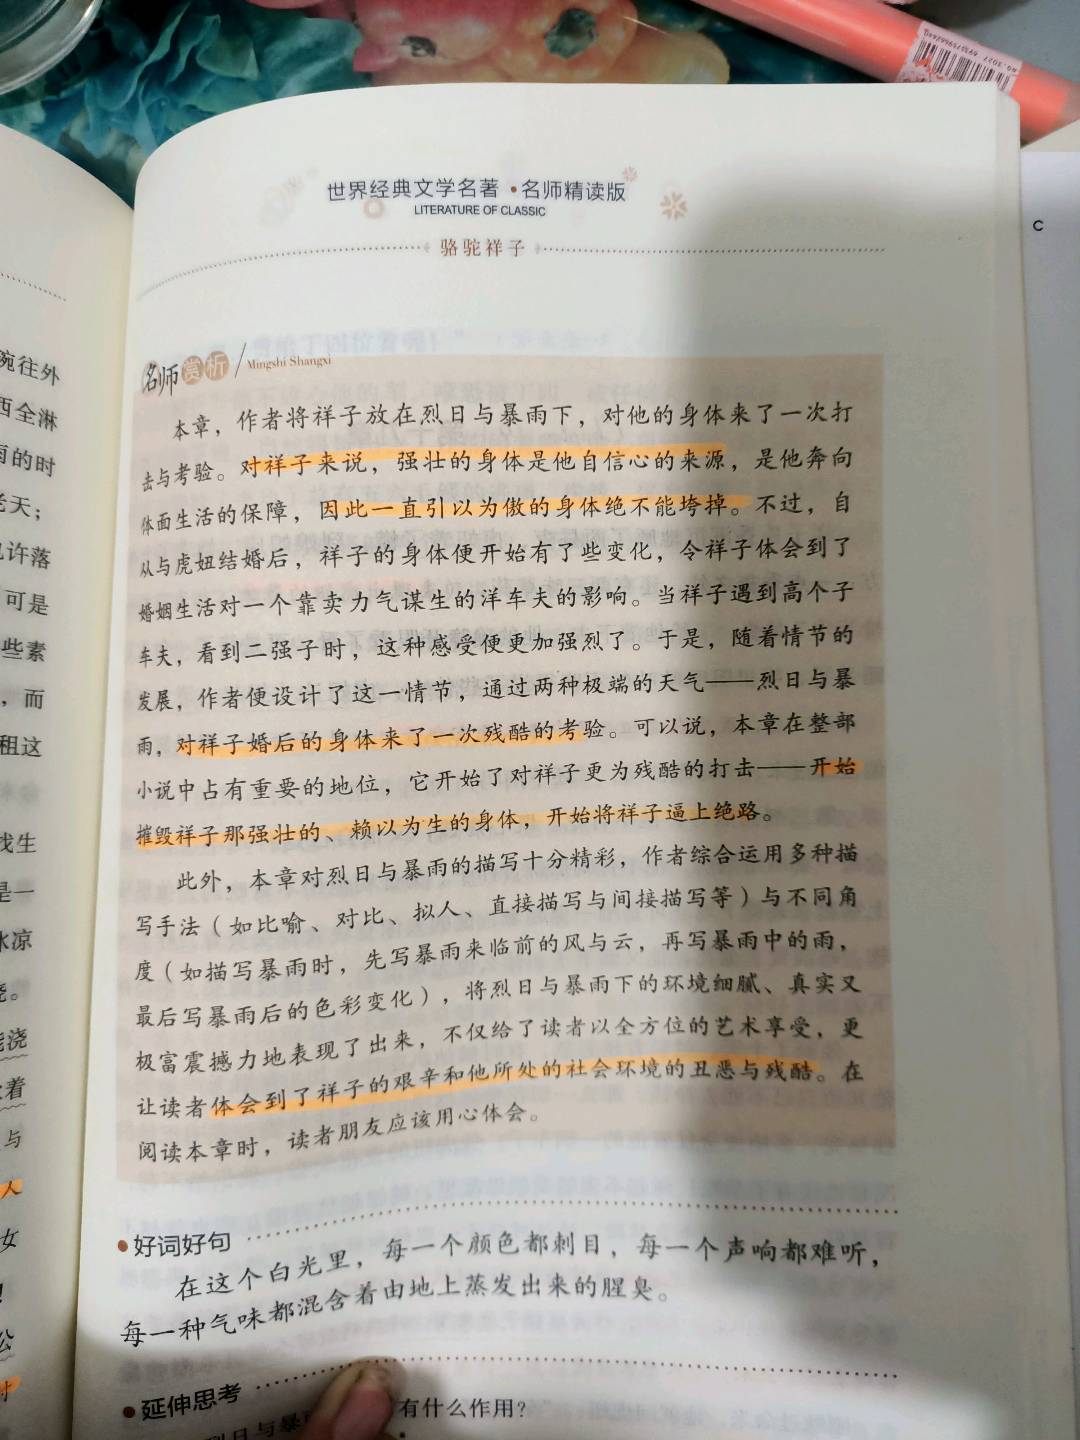 世界经典文学名著·名师精读版
LITERATURE OF CLASSIC
骆驼祥子
名师赏析 Mingshi Shangxi
本章，作者将祥子放在烈日与暴雨下，对他的身体来了一次打
击与考验。对祥子来说，强壮的身体是他自信心的来源，是他奔向
体面生活的保障，因此一直引以为傲的身体绝不能垮掉。不过，自
从与虎妞结婚后，祥子的身体便开始有了些变化，令祥子体会到了
婚姻生活对一个靠卖力气谋生的洋车夫的影响。当祥子遇到高个子
车夫，看到二强子时，这种感受便更加强烈了。于是，随着情节的
发展，作者便设计了这一情节，通过两种极端的天气——烈日与暴
雨，对祥子婚后的身体来了一次残酷的考验。可以说，本章在整部
小说中占有重要的地位，它开始了对祥子更为残酷的打击——开始
摧毁祥子那强壮的、赖以为生的身体，开始将祥子逼上绝路。
此外，本章对烈日与暴雨的描写十分精彩，作者综合运用多种描
写手法（如比喻、对比、拟人、直接描写与间接描写等）与不同角
度（如描写暴雨时，先写暴雨来临前的风与云，再写暴雨中的雨，
最后写暴雨后的色彩变化），将烈日与暴雨下的环境细腻、真实又
极富震撼力地表现了出来，不仅给了读者以全方位的艺术享受，更
让读者体会到了祥子的艰辛和他所处的社会环境的丑恶与残酷。在
阅读本章时，读者朋友应该用心体会。
•好词好句
在这个白光里，每一个颜色都刺目，每一个声响都难听，
每一种气味都混含着由地上蒸发出来的腥臭。
•延伸思考
烈日与暴
有什么作用？
碗往外
西全淋
雨的时
老天；
也许落
可是
些素
，而
租这
找生
是一
冰凉
浇。
能浇
着
与
人
女
！
公
时
C